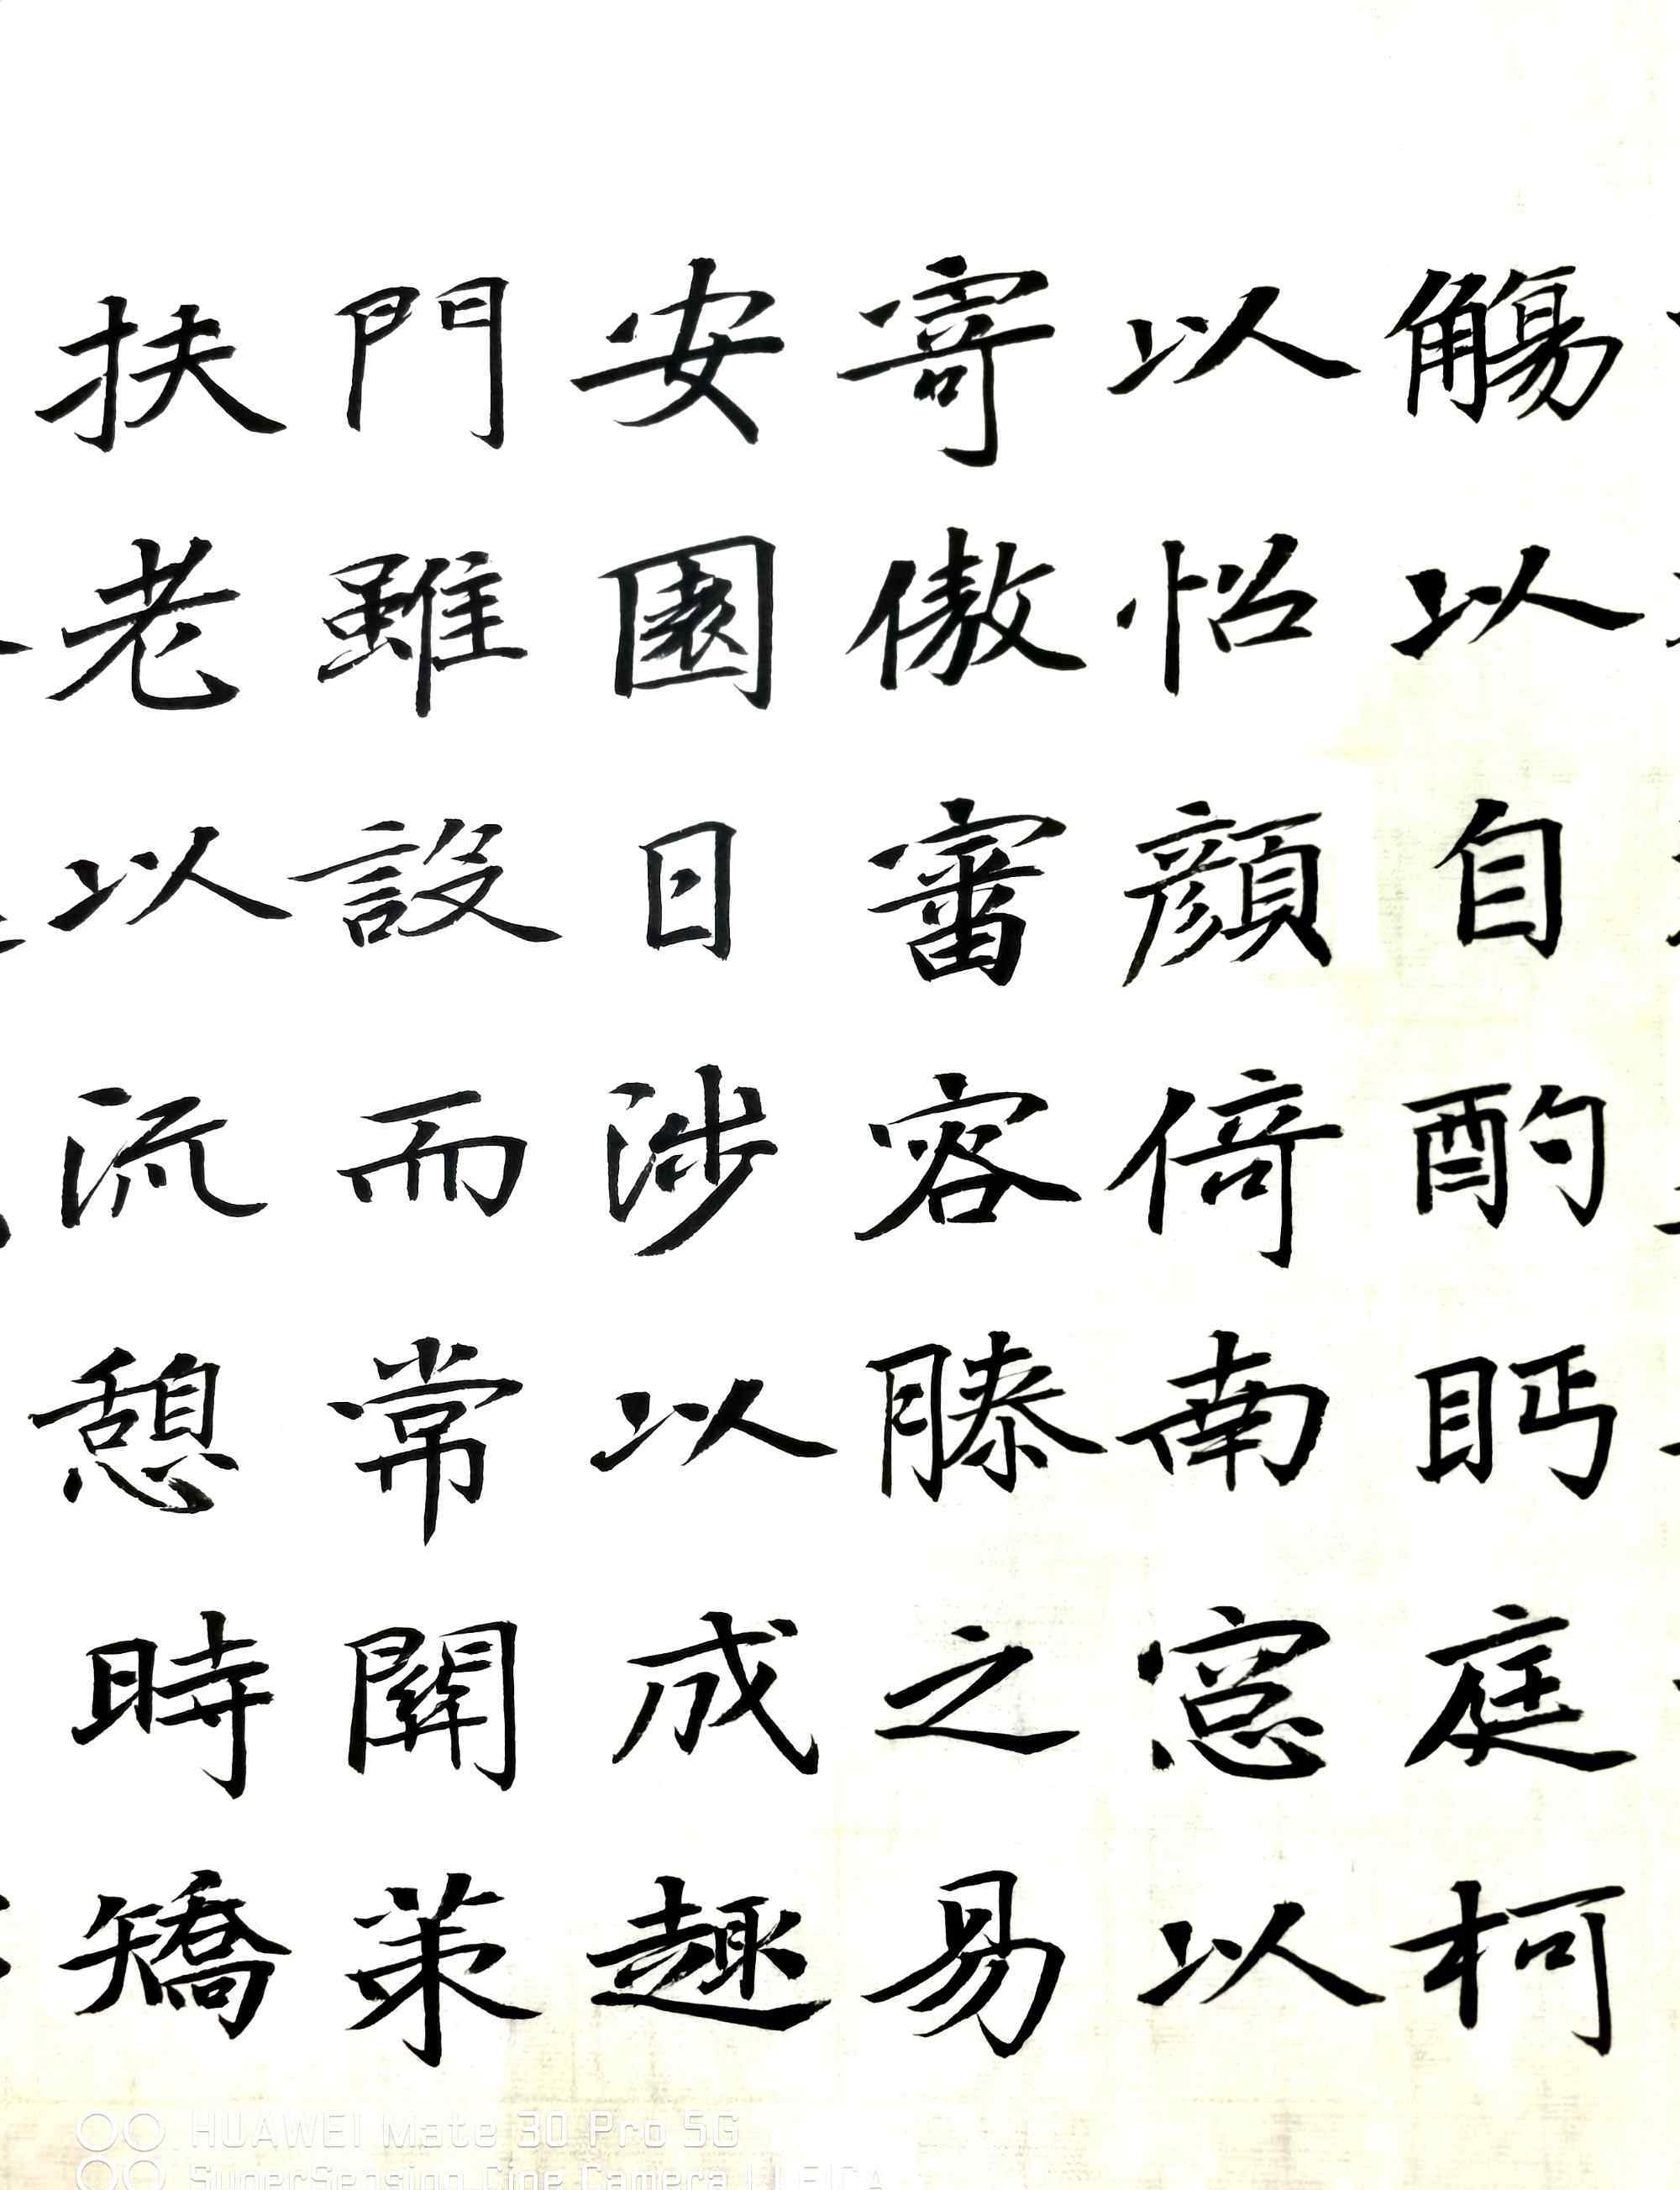 觴以自酌眄庭柯
以怡顏倚南窓以
寄傲審容膝之易
安園日涉以成趣
門雖設而常關策
扶老以流憩時矯
HUAWEI Mate 30 Pro 5G
SuperSensing Cine Camera | LEICA